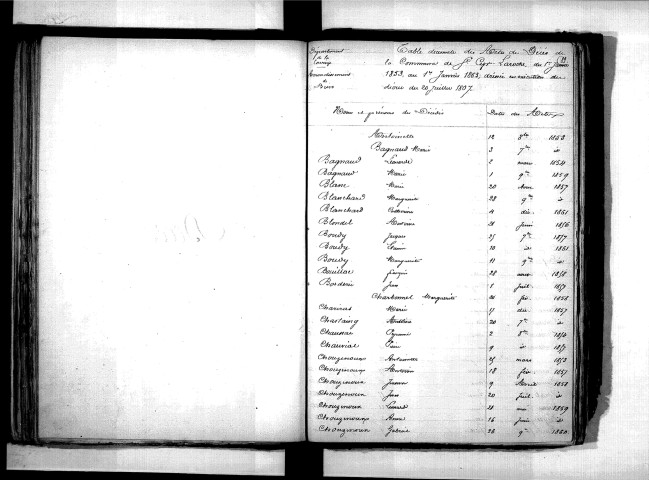 Département de la Corrèze
Arrondissement de Brive
Table décennale des Actes de Décès de
la Commune de St Cyr Laroche du 1er Janvier
1853 au 1er Janvier 1863, dressée en exécution du
décret du 20 juillet 1807.
Noms et prénoms des Décédés Dates des Actes
Antoinette 12 8bre 1853
Bagnaud Marie 3 7bre id
Bagnaud Léonarde 2 mars 1854
Bagnaud Marie 1 9bre 1859
Blanc Marie 20 1857
Blanchard Marguerite 28 9bre id
Blanchard Catherine 4 déc. 1861
Blondel Antoine 21 juin 1856
Boudy Jacques 25 7bre 1857
Boudy 10 id 1861
Boudy Marguerite 11 9bre id
Bouillac 28 1858
Borderie Jean 1 juil. 1857
Charbonnel Marguerite 20 fév. 1858
Marie 17 déc. 1857
Chastaing 20 7bre id
Chaussac 2 8bre
Chauviac 9 id
Chouzenoux Antoinette 25 mars 1853
Chouzenoux Antoine 18 fév. 1857
Chouzenoux Jeanne 9 Avril 1858
Chouzenoux Jean 20 juil. id
Chouzenoux Léonard 21 mai 1859
Chouzenoux Anne 16 juin id
Chouzenoux Gabriel 28 9bre 1860